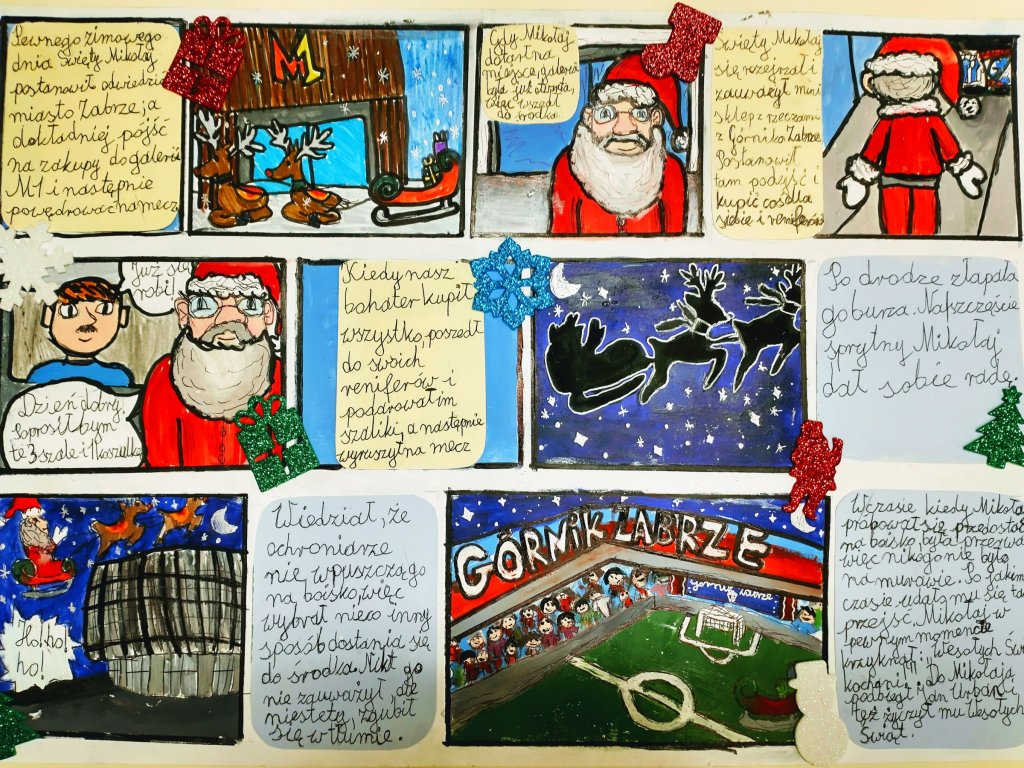 Pewnego zimowego
dnia Święty Mikołaj
postanowił odwiedzić
miasto Zabrze, a
dokładniej pójść
na zakupy do galerii
M1 i następnie
powędrować na mecz
M1
Gdy Mikołaj
dotarł na
miejsce, galeria
była już otwarta,
więc wszedł
do środka.
Święty Mikołaj
się rozejrzał i
zauważył mini
sklep z rzeczami
z Górnika Zabrze.
Postanowił
tam podejść i
kupić coś dla
siebie i reniferów
Już się
robi!
Dzień dobry,
poprosiłbym
te 3 szale i 1 koszulkę
Kiedy nasz
bohater kupił
wszystko, poszedł
do swoich
reniferów i
podarował im
szaliki, a następnie
wyruszył na mecz
Po drodze złapała
go burza. Na szczęście
sprytny Mikołaj
dał sobie radę.
Ho! ho!
ho!
Wiedział, że
ochroniarze
nie wpuszczą go
na boisko, więc
wybrał nieco inny
sposób dostania się
do środka. Nikt go
nie zauważył, ale
niestety, zgubił
się w tłumie.
GÓRNIK ZABRZE
górnik zabrze
W czasie kiedy Mikołaj
próbował się przedostać
na boisko, była przerwa
więc nikogo nie było
na murawie. Po jakimś
czasie udało mu się tam
przejść, Mikołaj w
pewnym momencie
krzyknął: "Wesołych Świąt
kochani!". Do Mikołaja
podbiegł Jan Urban i
też życzył mu Wesołych
Świąt.